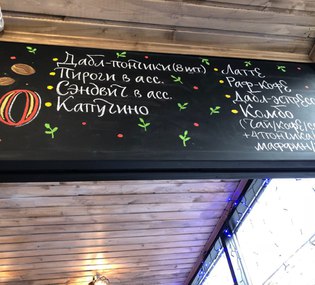 Дабл-понтики (8 шт)
Пироги в асс.
Сэндвич в асс.
Капучино
Латте
Раф-кофе
Дабл-эспресс
Комбо
(Чай/кофе/
+4 пончика
маффин/